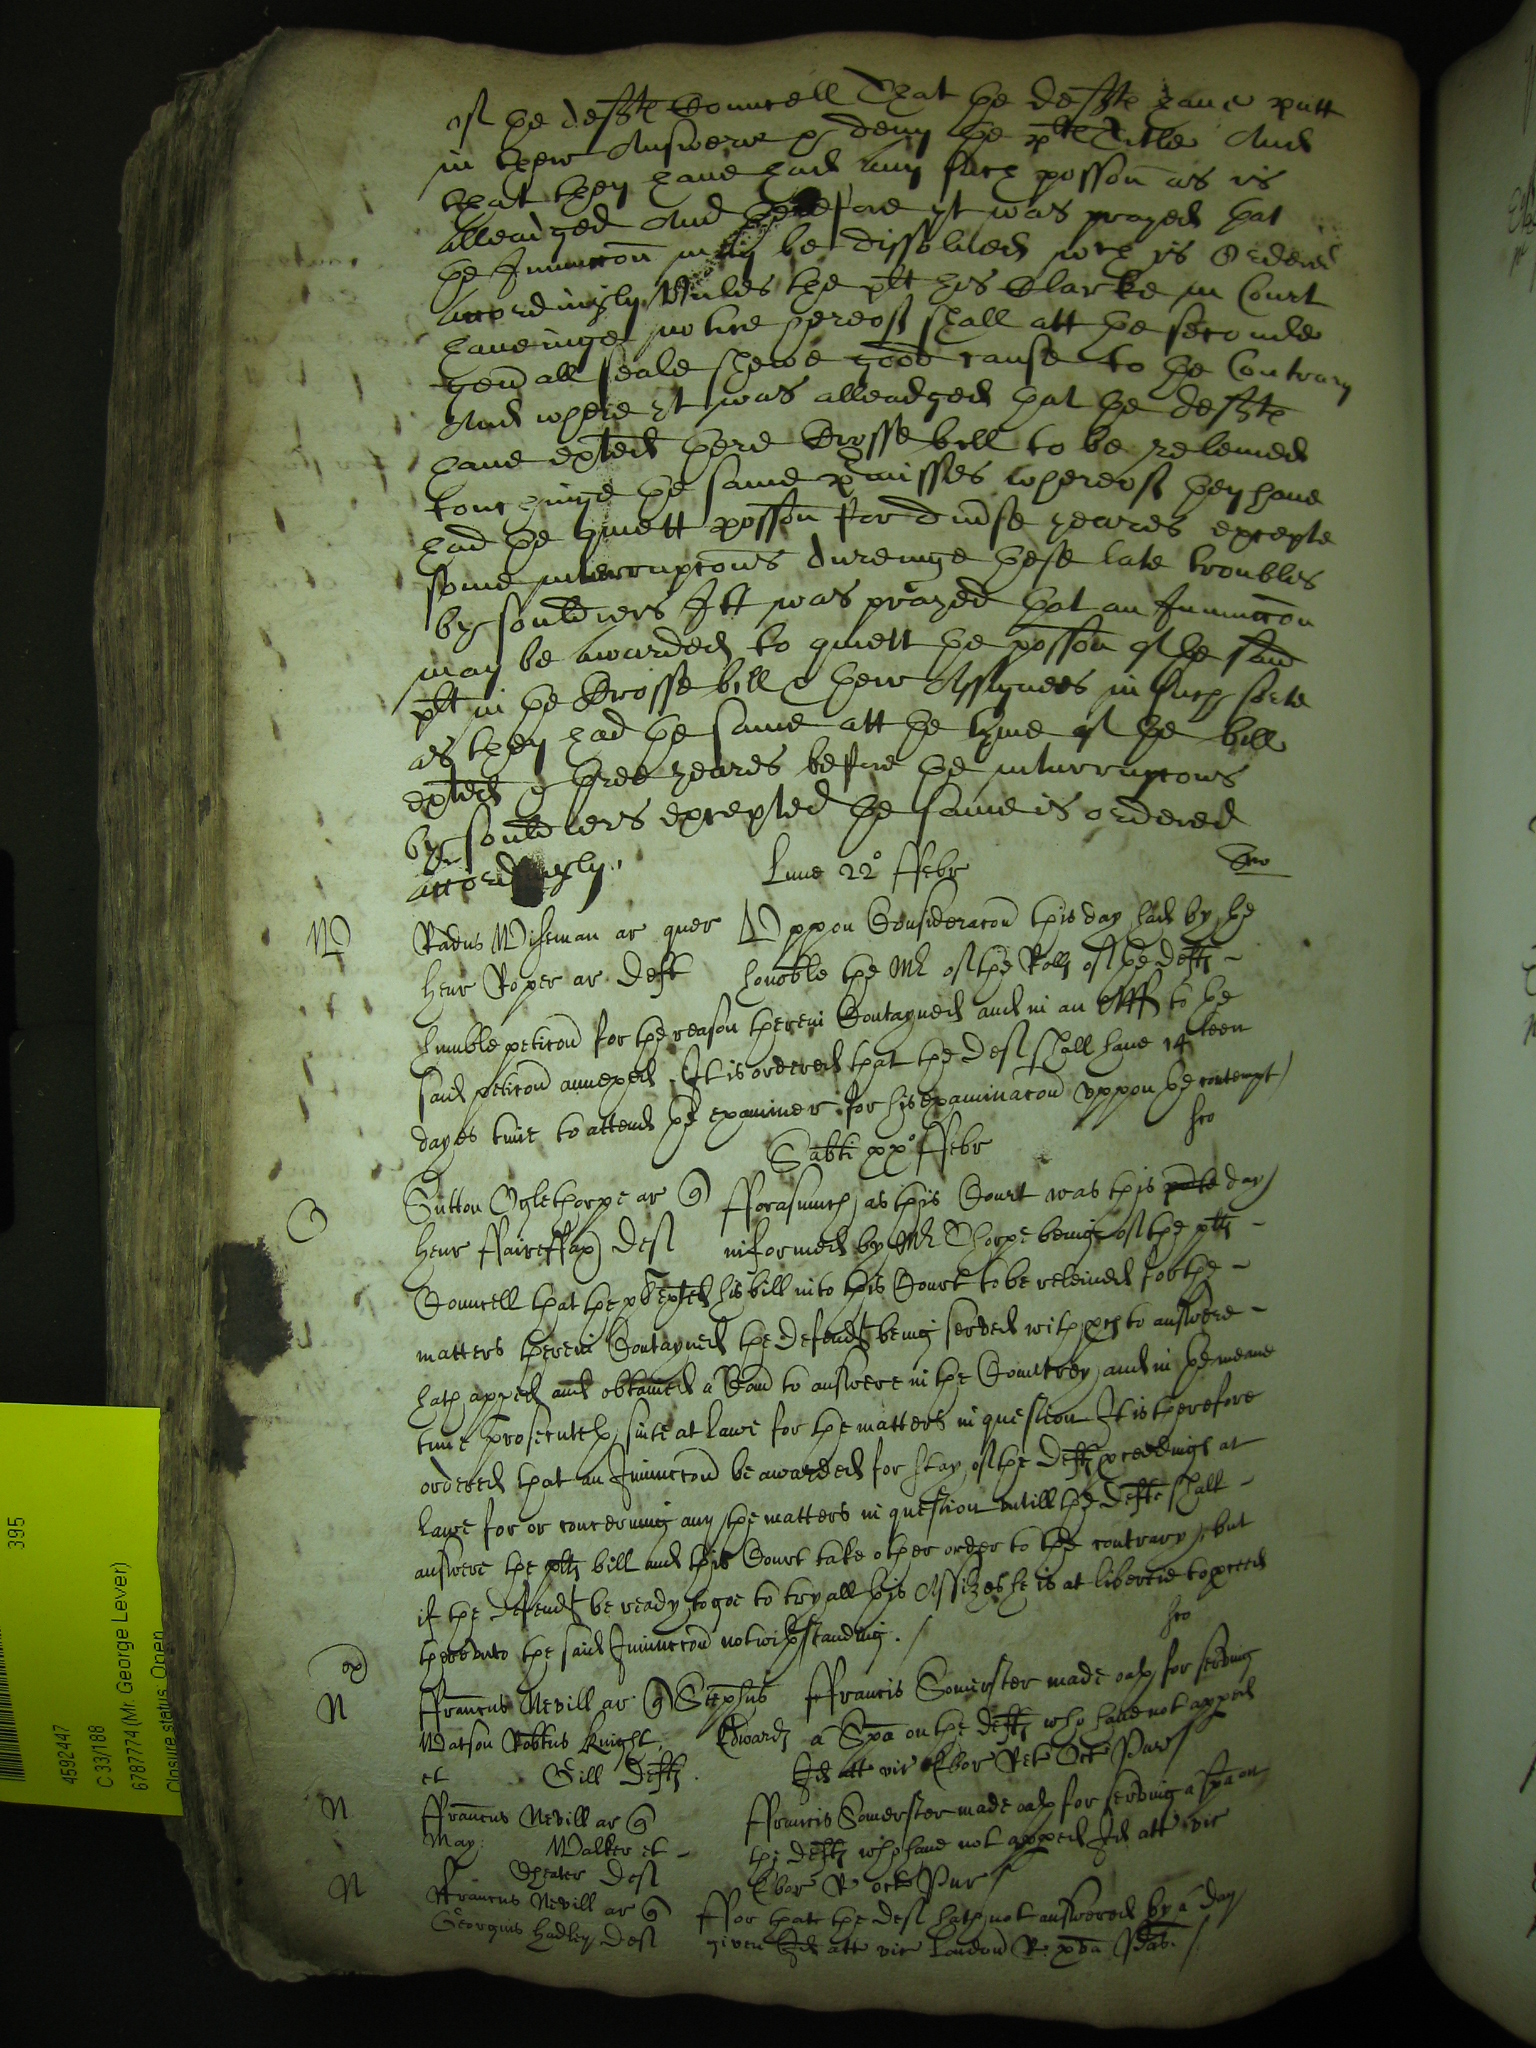 of the defts Councell That the defts have putt
in their Answere & deny the plts Title And
that they have had any such possion as is
alleadged And therefore it was prayed that
the Iniunccon may be dissolved wch is Ordered
accordingly Unles the plt his Clarke in Court
haveinge notice hereof shall att the seconde
genall seale shewe good cause to the Contrary
And where it was alleadged that the defts
have exhted there Crosse bill to be releived
touchinge the same pmisses whereof they have
had the quiett possion for divse yeares excepte
some interrupcons dureinge these late troubles
by souldiers Itt was prayed that an Iniunccon
may be awarded to quiett the possion of the said
plt in the Crosse bill & their Assignees in such sorte
as they had the same att the tyme of the bill
exhted & three yeares before the interrupcons
by souldiers excepted the same is ordered
accordingly.
Lune 22o ffebr
Radus Wiseman ar quer Uppon Consideracon this day had by the
Henr Roper ar Deft honoble the Mr of the Rolls of the defts
humble peticon for the reason therein Contayned and in an Afft to the
said peticon annexed It is ordered that the Deft shall have 14teen
dayes time to attend the examiner for his examinacon uppon the contempt
Sabti xxo ffebr
Sutton Oglethorpe ar Q fforasmuch as this Court was this day
Henr ffaireffax Deft informed by Mr Thorpe being of the plts
Councell that the plt exhted his bill into this Court to be releived for the
matters therein Contayned the defendt being served with pces to answere
hath apped and obtained a Comn to answere in the Countrey and in the meane
time prosecuteth suite at lawe for the matters in question It is therefore
ordered that an Iniunccon be awarded for stay of the Defts pceedings at
lawe for or concerning any the matters in question untill the Defts shall
answere the plts bill and this Court take other order to the contrary but
if the defendt be ready to goe to tryall this Assizes he is at libertie to pceed
thereunto the said Iniunccon notwithstanding.
N ffrancus Nevill ar Q Stephus ffrancis Somerster made oath for serving
Watson Robtus Knight, Edwards a Spa on the defts who have not apped
et Gill Defts. Id att vic Ebor Ret Octe Pur
N ffrancus Nevill ar Q ffrancis Somerster made oath for serving a spa on
May Walker et the defts who have not apped Id att vic
Theaker Deft Ebor R octe Pur
N ffrancus Nevill ar Q ffor that the Deft hath not answered by a day
Georgius Hadley Deft given Id att vic London R
395
4592447
C 33/188
6787774 (Mr. George Lever)
Closure status: Open